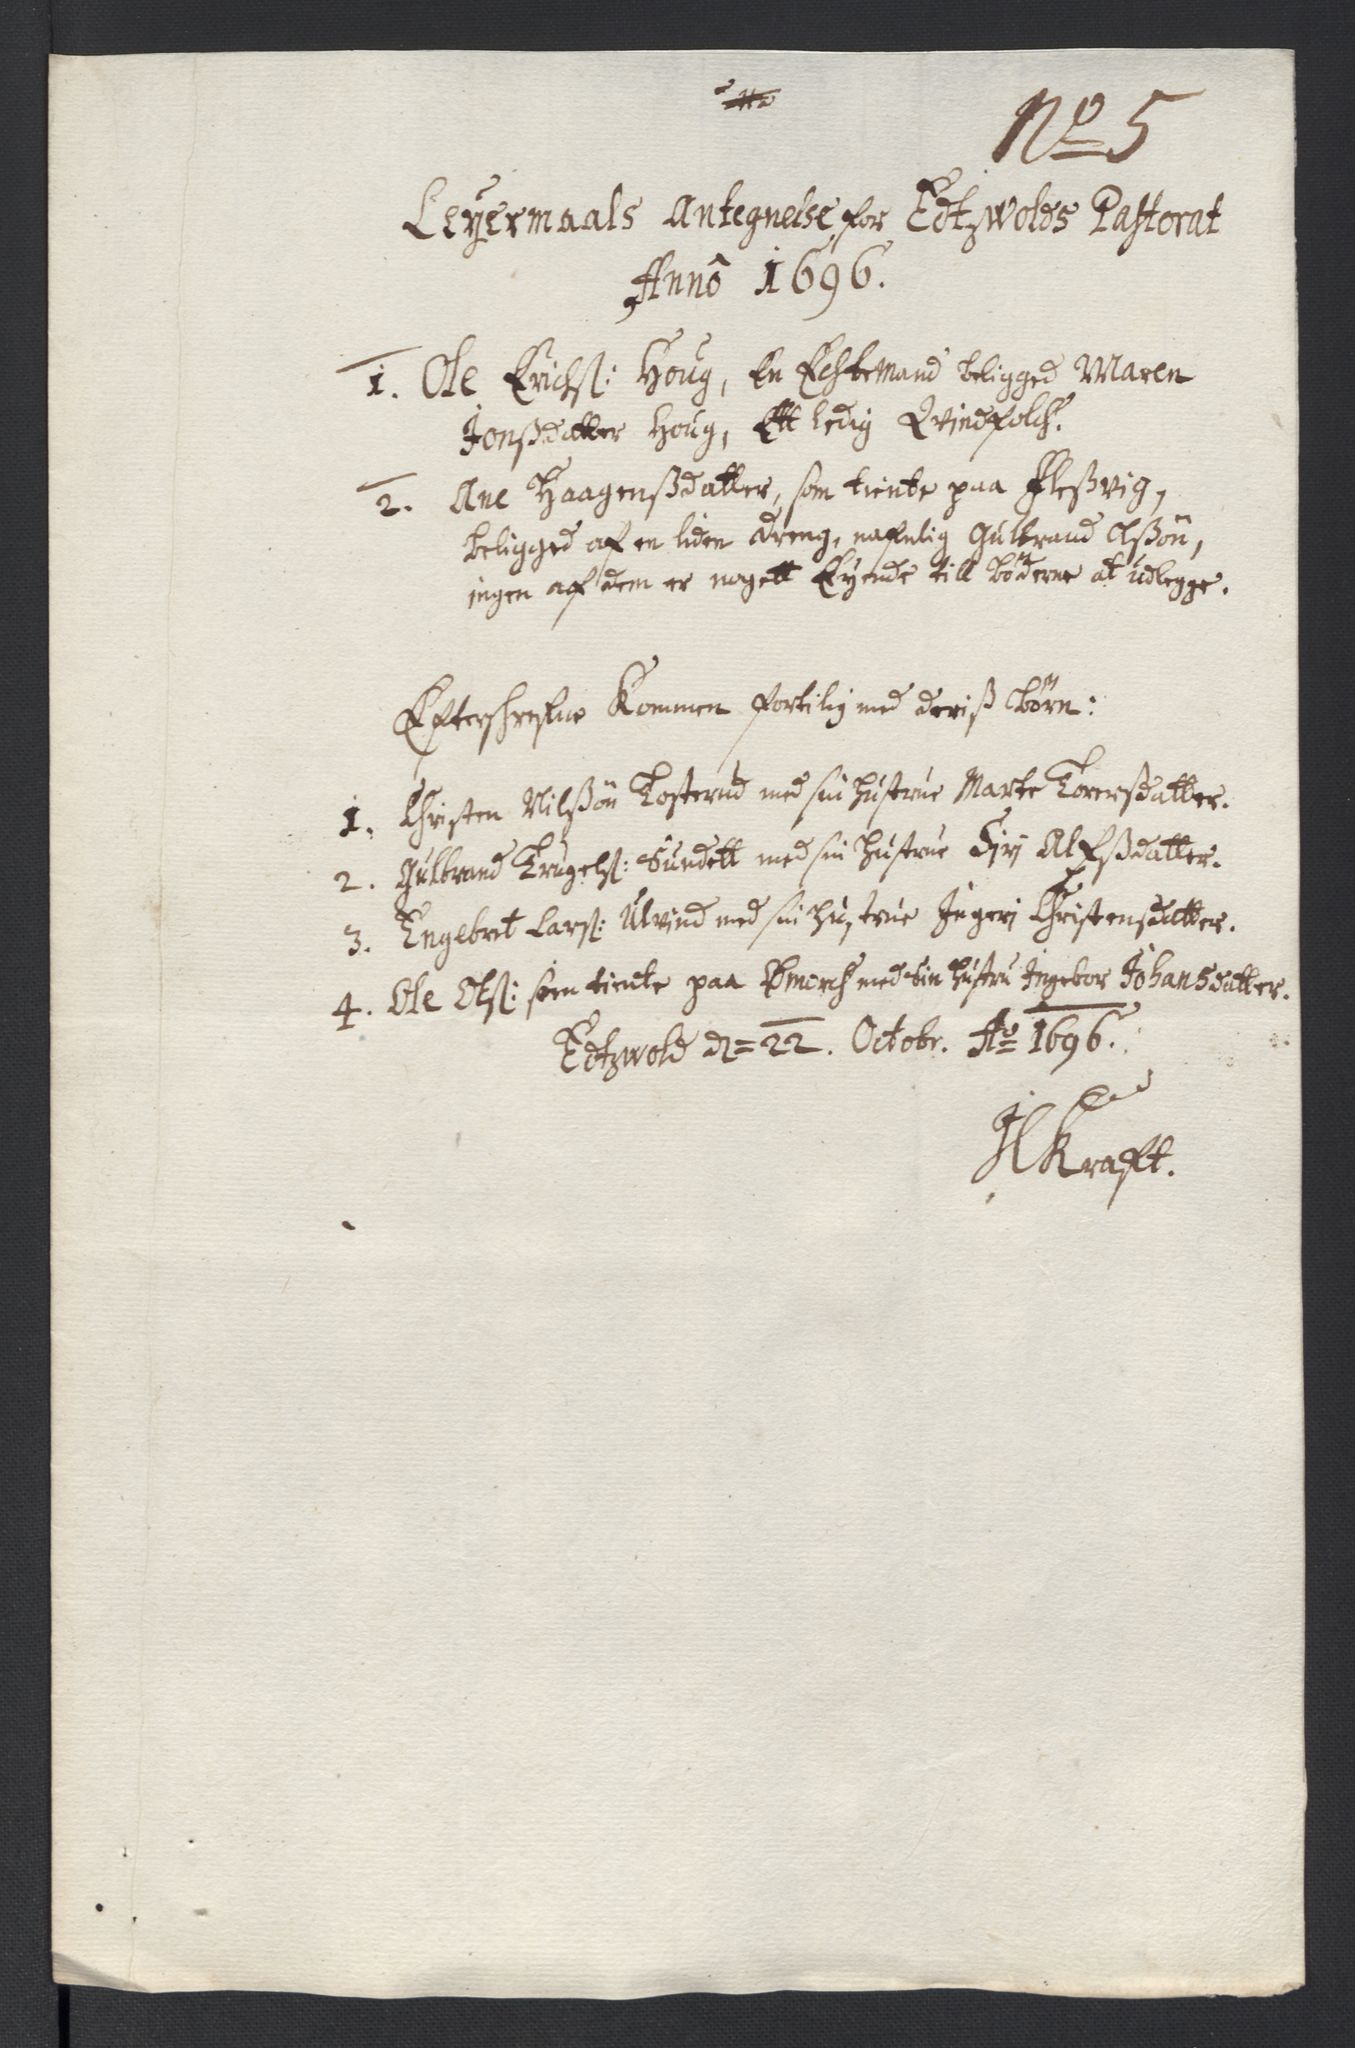 No 5
Leyermaals Antegnelse for Edtzwolds Pastorat
Anno 1696.
1. Ole Erichs: Houg, En Echtemand beligged Maren
Jonsdatter Houg, Ett ledig Qvindfolch.
2. Ane Haagenßdatter, som tiente paa Fleßvig,
beligged af en liden dreng, nafnlig Gulbrand Olßön,
ingen af dem er nogett Eyende till böderne at udlegge.
Efterschrefne Kommen fortilig med deriß Börn:
1. Christen Nilßön Tosterud med sin hustrue Marte Torersdatter.
2. Gulbrand Trugels: Sundett med sin hustrue Siri Alfßdatter.
3. Engebret Lars: Ulvind med sin hustrue Ingeri Christensdatter.
4. Ole Ols: som tiente paa med sin hustru Ingebor Johansdatter.
Edtzwold d= 22. Octobr. Ao 1696.
Kraft.